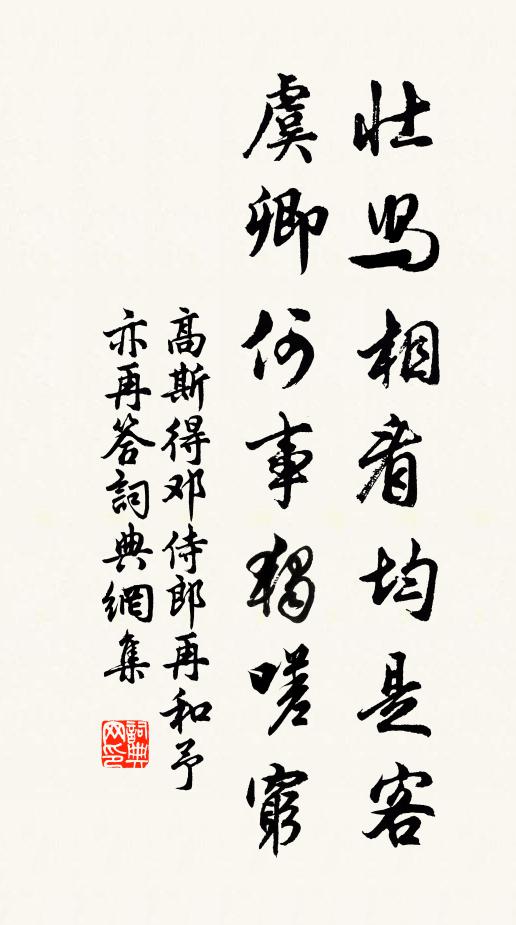 壮舄相看均是客
虞卿何事独嗟穷
高斯得邓侍郎再和予
亦再答詞典網集
詞典
网印